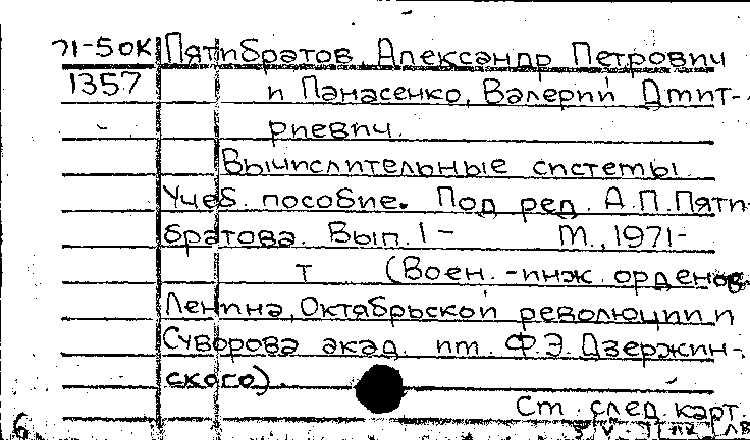 71-5ОК Пятибратов, Александр Петрович
1357 и Панасенко, Валерий Дмит-
риевич.
Вычислительные системы.
Учеб. пособие. Под ред. А.П.Пяти-
братова. Вып. 1- М., 1971-
т (Воен.-инж. орденов
Ленина, Октябрьской революции и
Суворова акад. им. Ф.Э.Дзержин-
ского).
См. след. карт.